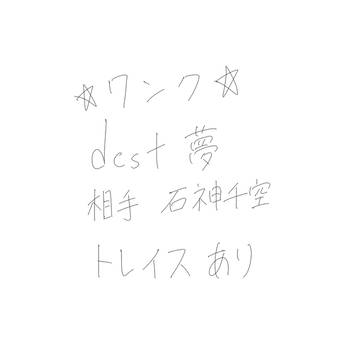 ☆ワンク☆
dcst 夢
相手 石神千空
トレイス あり